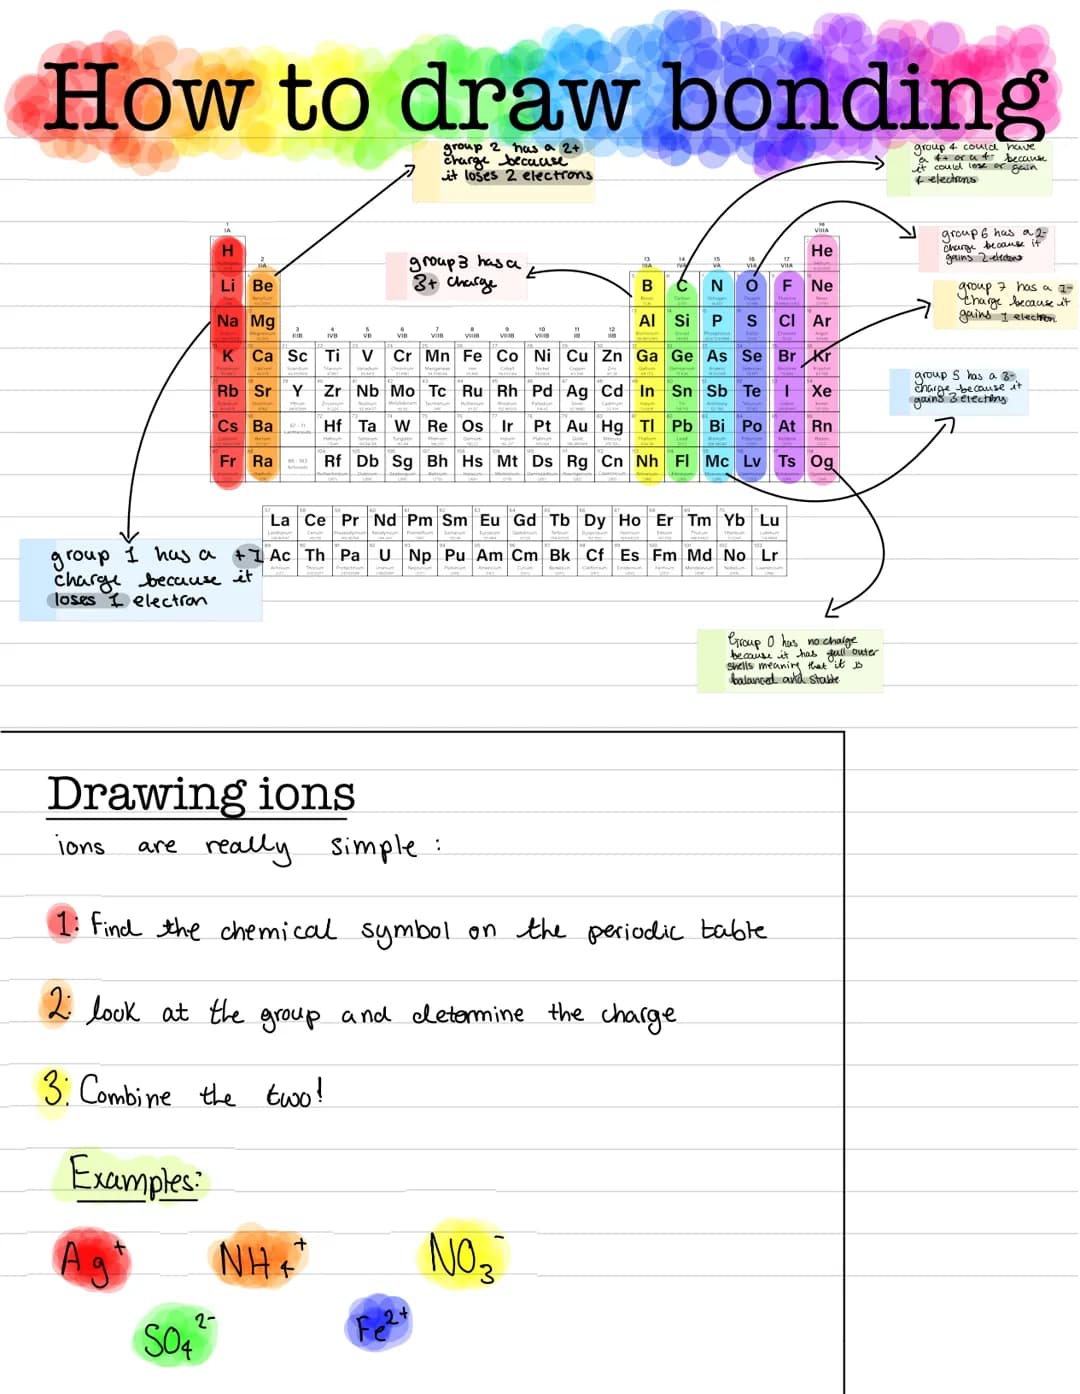 How to draw bonding
group 2 has a 2+
charge because
it loses 2 electrons
group 4 could have
a 4+ or a 4- because
it could lose or gain
4 electrons
group 6 has a 2-
charge because it
gains 2 electrons
group 3 has a
3+ charge
group 7 has a 1-
charge because it
gains 1 electron
group 5 has a 3-
charge because it
gains 3 electrons
1 18
IA VIIIA
H He
2 13 14 15 16 17
IIA IIIA IVA VA VIA VIIA
Li Be B C N O F Ne
Na Mg Al Si P S Cl Ar
3 4 5 6 7 8 9 10 11 12
IIIB IVB VB VIB VIIB VIIIB VIIIB VIIIB IB IIB
K Ca Sc Ti V Cr Mn Fe Co Ni Cu Zn Ga Ge As Se Br Kr
Rb Sr Y Zr Nb Mo Tc Ru Rh Pd Ag Cd In Sn Sb Te I Xe
Cs Ba 57 - 71 Hf Ta W Re Os Ir Pt Au Hg Tl Pb Bi Po At Rn
Fr Ra 89 - 103 Rf Db Sg Bh Hs Mt Ds Rg Cn Nh Fl Mc Lv Ts Og
La Ce Pr Nd Pm Sm Eu Gd Tb Dy Ho Er Tm Yb Lu
Ac Th Pa U Np Pu Am Cm Bk Cf Es Fm Md No Lr
group 1 has a +1
charge because it
loses 1 electron
Group 0 has no charge
because it has full outer
shells meaning that it is
balanced and stable
Drawing ions
ions are really simple :
1: Find the chemical symbol on the periodic table
2: look at the group and determine the charge
3: Combine the two!
Examples:
Ag⁺ NH₄⁺ NO₃⁻
SO₄²⁻ Fe²⁺